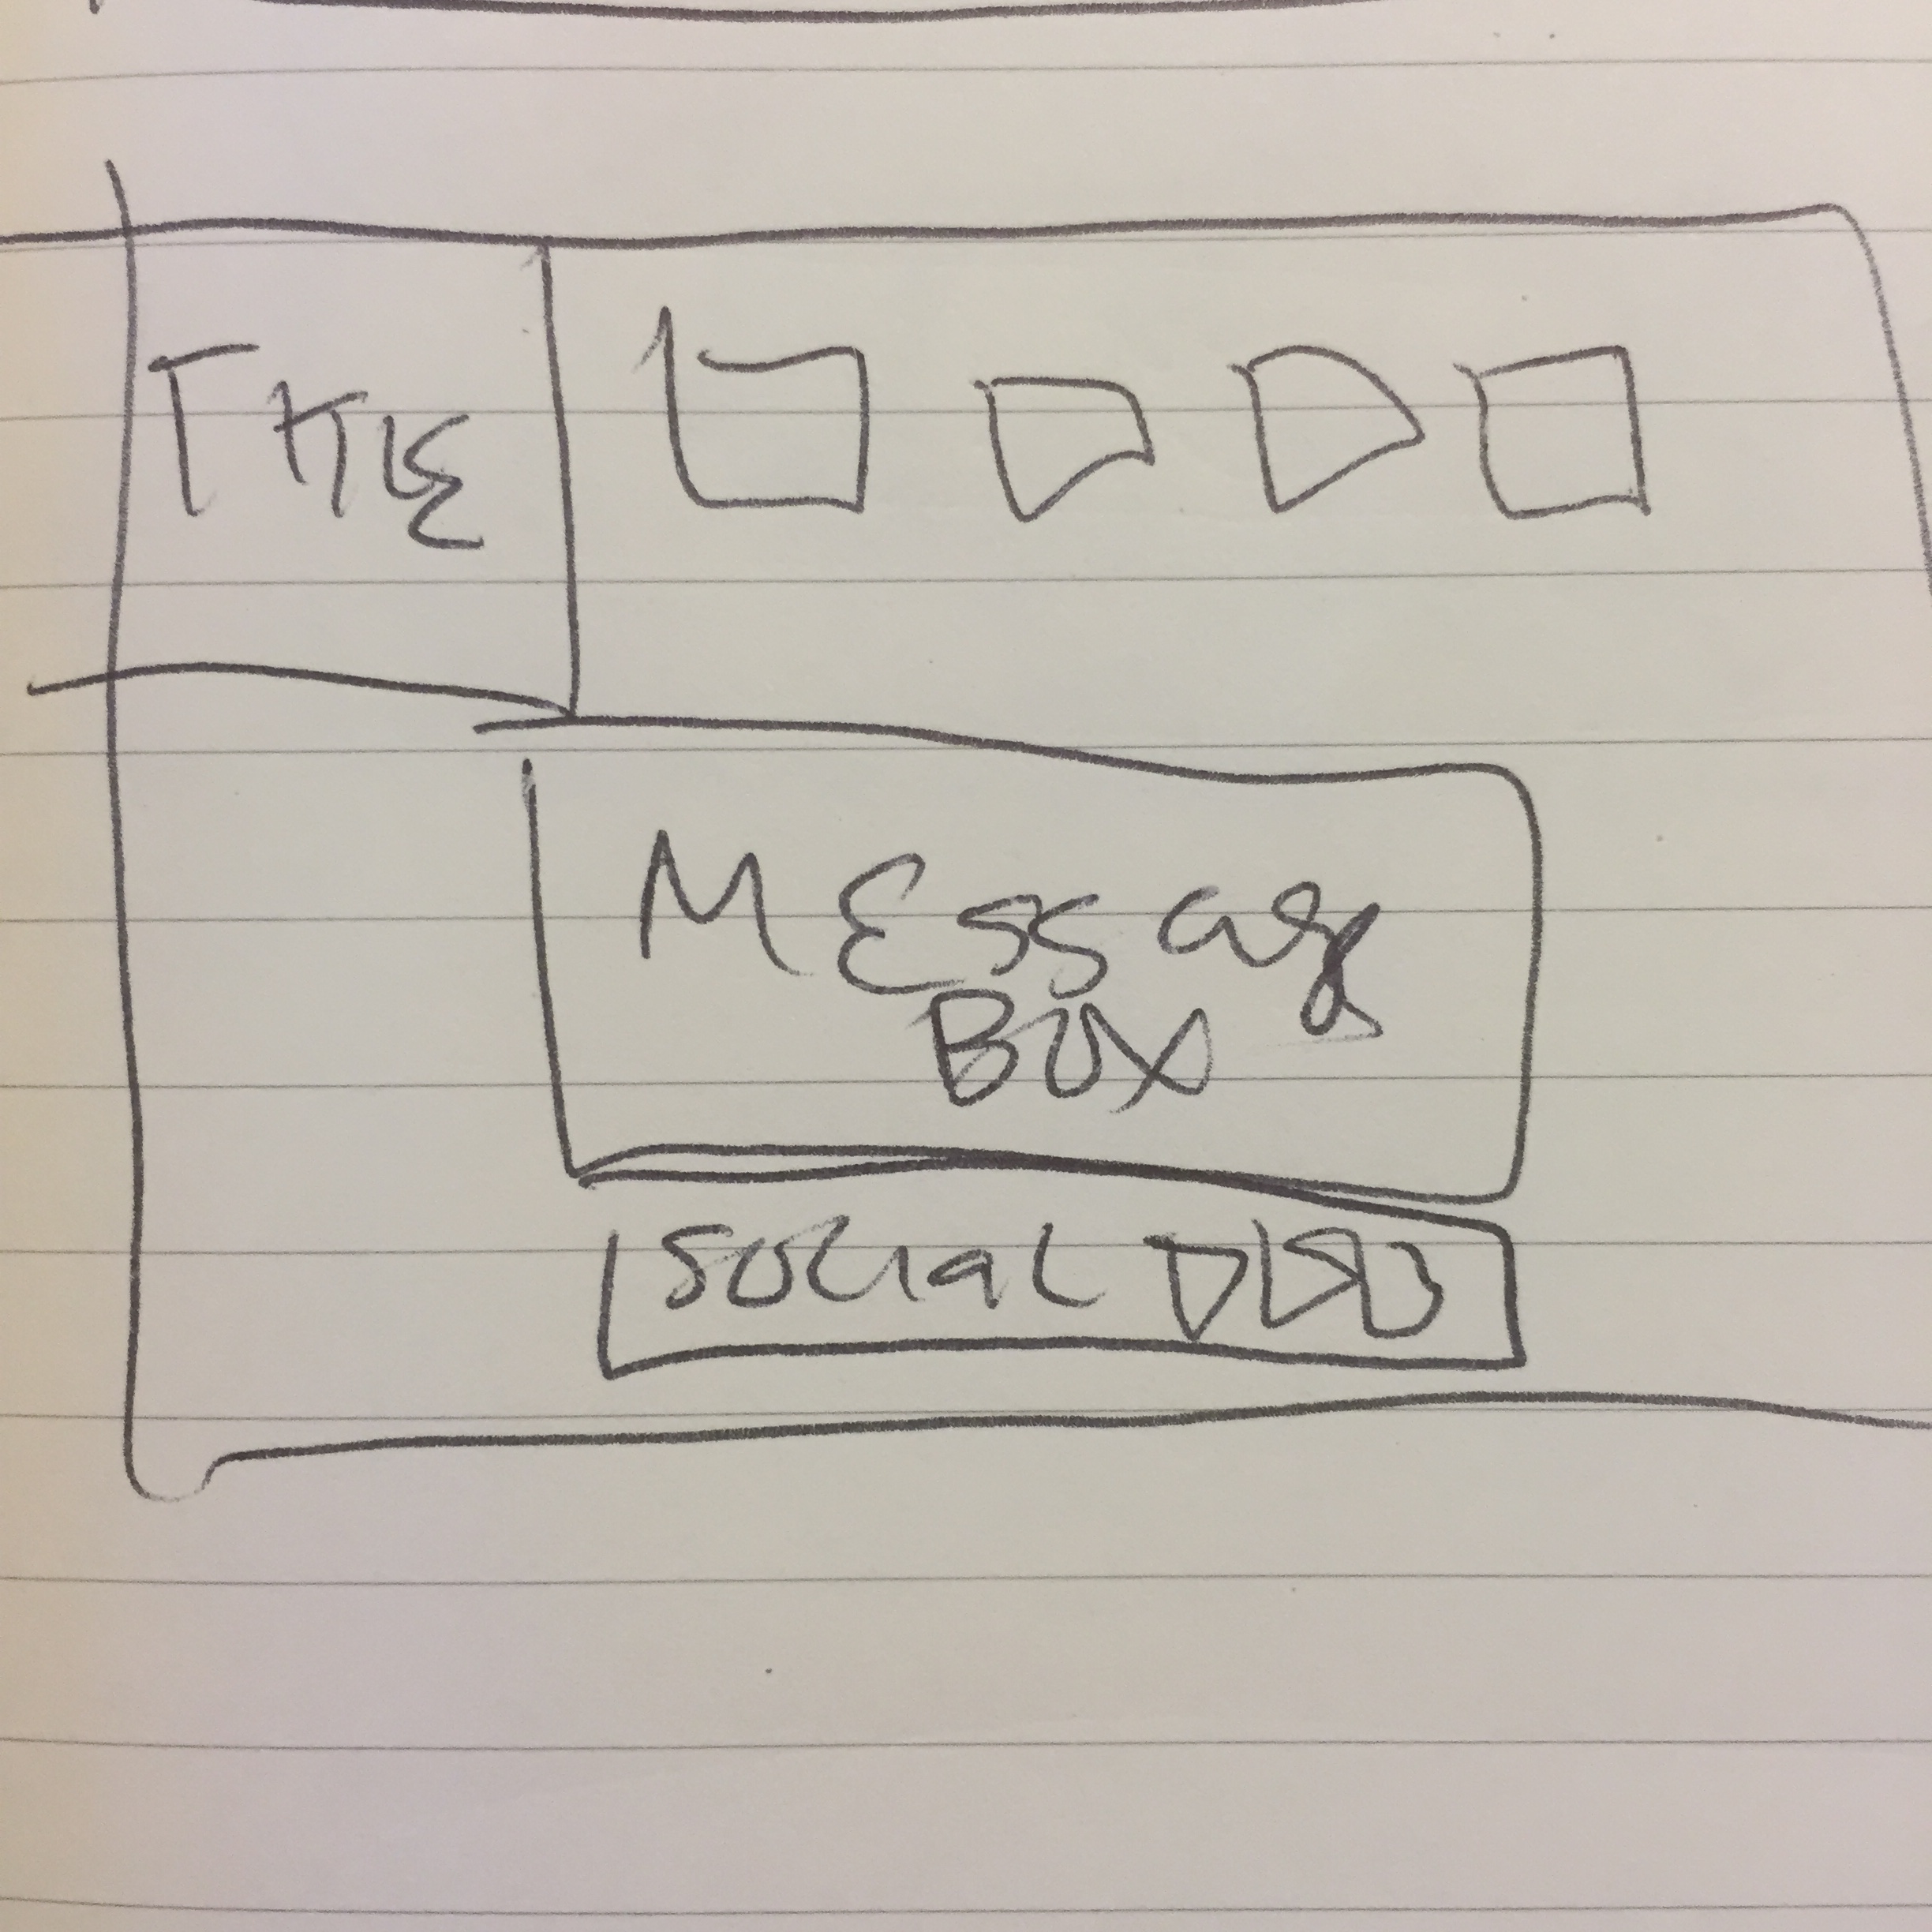 Title
Message
Box
social